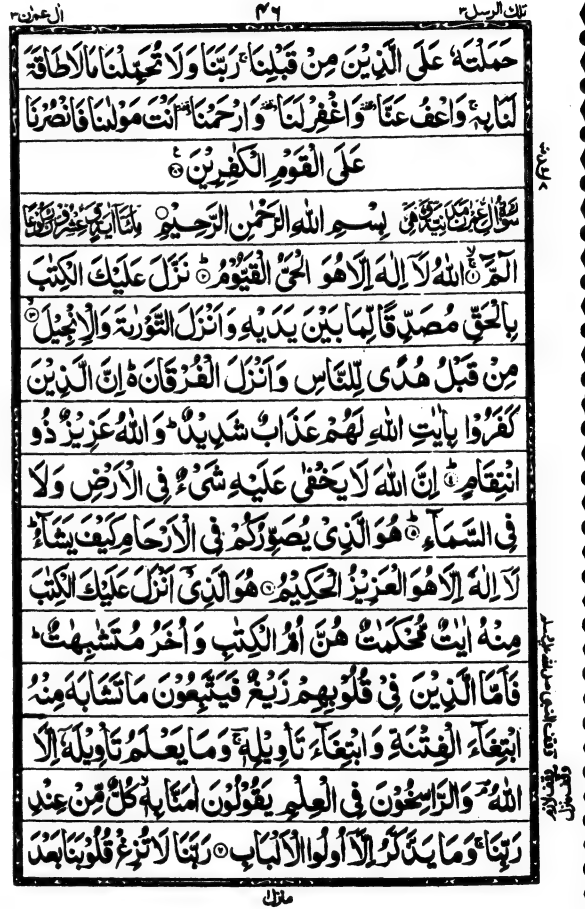 تلك الرسل ٣ ٤٦ ال عمرٰن ٣
حَمَلْتَهٗ عَلَى الَّذِيْنَ مِنْ قَبْلِنَا ۚ رَبَّنَا وَلَا تُحَمِّلْنَا مَا لَا طَاقَةَ
لَنَا بِهٖ ۚ وَاعْفُ عَنَّا ۥ وَاغْفِرْ لَنَا ۥ وَارْحَمْنَا ۥ اَنْتَ مَوْلٰىنَا فَانْصُرْنَا
عَلَى الْقَوْمِ الْكٰفِرِيْنَ
بِسْمِ اللهِ الرَّحْمٰنِ الرَّحِيْمِ
الٓمّٓ ۝١ اللهُ لَآ اِلٰهَ اِلَّا هُوَ الْحَىُّ الْقَيُّوْمُ ۝٢ نَزَّلَ عَلَيْكَ الْكِتٰبَ
بِالْحَقِّ مُصَدِّقًا لِّمَا بَيْنَ يَدَيْهِ وَاَنْزَلَ التَّوْرٰىةَ وَالْاِنْجِيْلَ ۝٣
مِنْ قَبْلُ هُدًى لِّلنَّاسِ وَاَنْزَلَ الْفُرْقَانَ ۥ اِنَّ الَّذِيْنَ
كَفَرُوْا بِاٰيٰتِ اللهِ لَهُمْ عَذَابٌ شَدِيْدٌ ؕ وَاللهُ عَزِيْزٌ ذُو
انْتِقَامٍ ۝٤ اِنَّ اللهَ لَا يَخْفٰى عَلَيْهِ شَىْءٌ فِى الْاَرْضِ وَلَا
فِى السَّمَآءِ ۝٥ هُوَ الَّذِىْ يُصَوِّرُكُمْ فِى الْاَرْحَامِ كَيْفَ يَشَآءُ ؕ
لَآ اِلٰهَ اِلَّا هُوَ الْعَزِيْزُ الْحَكِيْمُ ۝٦ هُوَ الَّذِىْٓ اَنْزَلَ عَلَيْكَ الْكِتٰبَ
مِنْهُ اٰيٰتٌ مُّحْكَمٰتٌ هُنَّ اُمُّ الْكِتٰبِ وَاُخَرُ مُتَشٰبِهٰتٌ ؕ
فَاَمَّا الَّذِيْنَ فِىْ قُلُوْبِهِمْ زَيْغٌ فَيَتَّبِعُوْنَ مَا تَشَابَهَ مِنْهُ
ابْتِغَآءَ الْفِتْنَةِ وَابْتِغَآءَ تَاْوِيْلِهٖ ۚ وَمَا يَعْلَمُ تَاْوِيْلَهٗٓ اِلَّا
اللهُ ۘ وَالرّٰسِخُوْنَ فِى الْعِلْمِ يَقُوْلُوْنَ اٰمَنَّا بِهٖ ۙ كُلٌّ مِّنْ عِنْدِ
رَبِّنَا ۚ وَمَا يَذَّكَّرُ اِلَّآ اُولُوا الْاَلْبَابِ ۝٧ رَبَّنَا لَا تُزِغْ قُلُوْبَنَا بَعْدَ